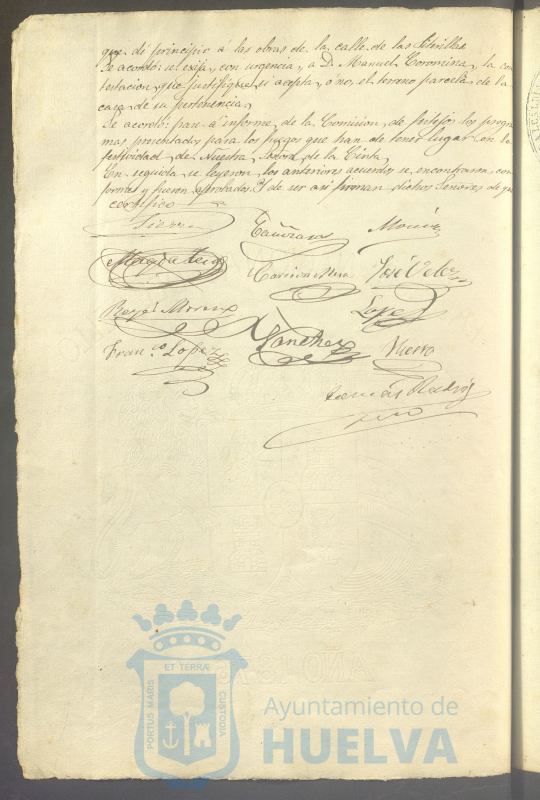 que dé principio á las obras de la calle de las
Se acordó: se exija, con urgencia, a D. Manuel Coromina, la con
testacion, que justifique, si acepta, ó no, el terreno parcela de la
casa de su pertenencia,
Se acordó: pase á informe, de la Comisión, de festejos los progra
mas presentados para los fuegos que han de tener lugar en la
festividad, de Nuestra Señora, de la Cinta,
En seguida se leyeron, los anteriores acuerdos se, encontraron, con
formes y fueron aprobados. Y de ser asi firman, dichos Señores de que
certifico
Sierra
José Velez
López
Franco. Lopez
Sanchez
Tomás
PORTUS MARIS
ET TERRÆ
CUSTODIA
Ayuntamiento de
HUELVA